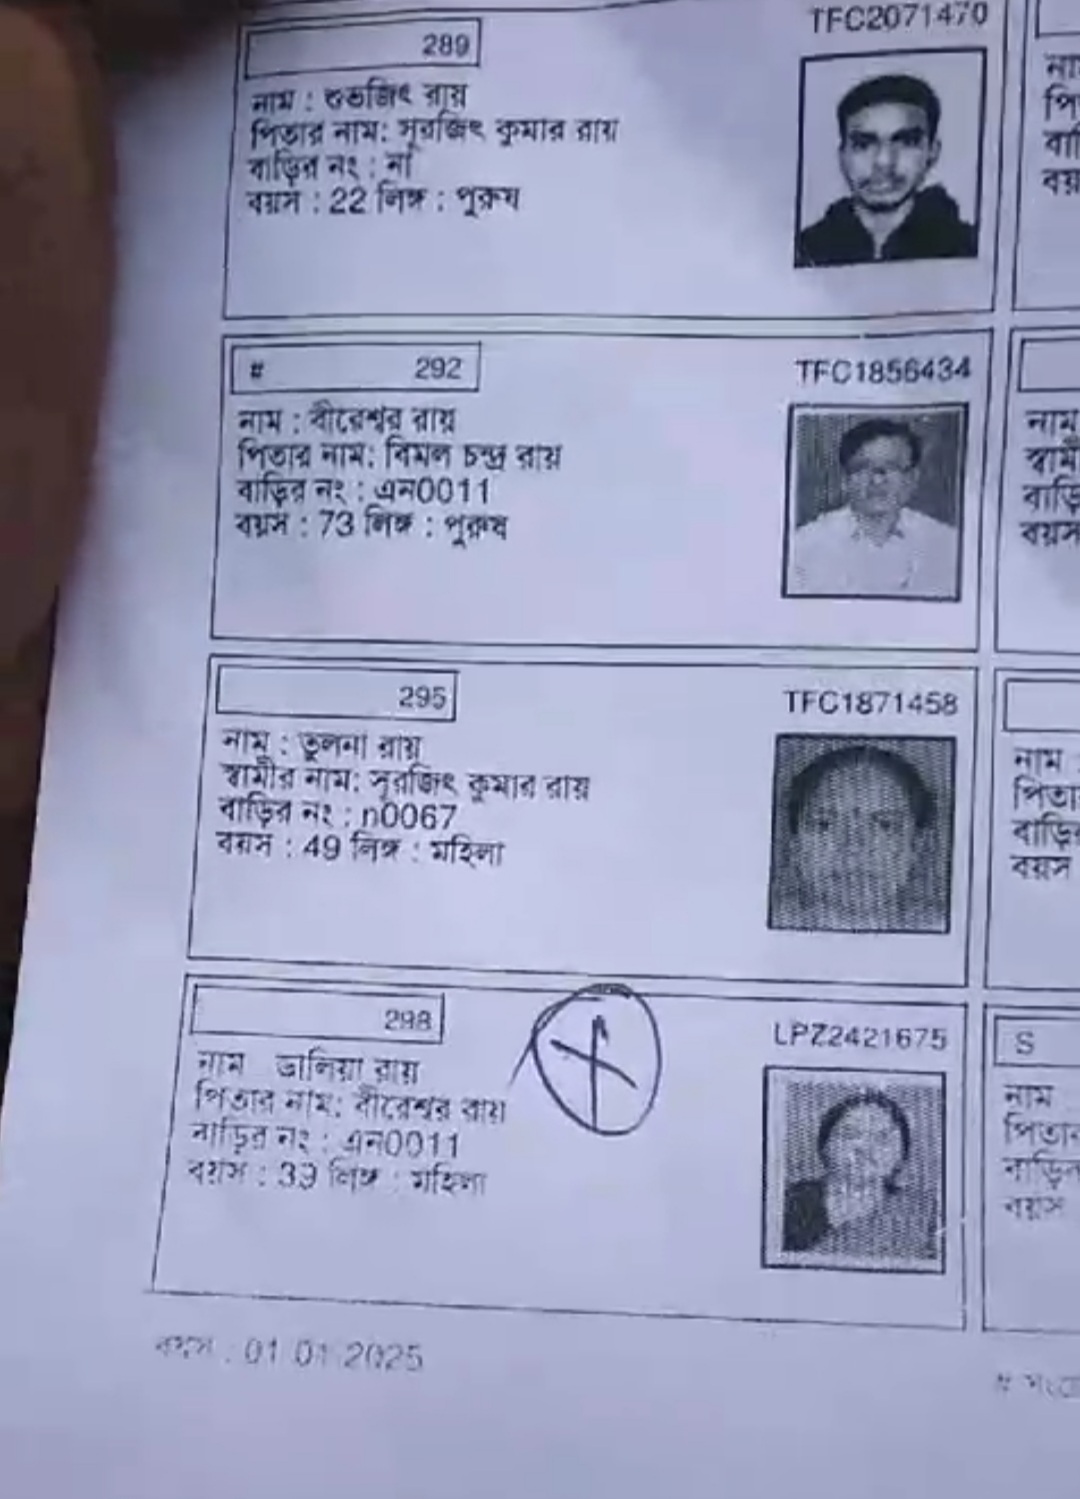 289
TFC2071470
নাম : শুভজিৎ রায়
পিতার নাম: সুরজিৎ কুমার রায়
বাড়ির নং : না
বয়স : 22 লিঙ্গ : পুরুষ
# 292
TFC1856434
নাম : বীরেশ্বর রায়
পিতার নাম: বিমল চন্দ্র রায়
বাড়ির নং : এন0011
বয়স : 73 লিঙ্গ : পুরুষ
295
TFC1871458
নাম : তুলনা রায়
স্বামীর নাম: সুরজিৎ কুমার রায়
বাড়ির নং : n0067
বয়স : 49 লিঙ্গ : মহিলা
298
LPZ2421675
নাম ডালিয়া রায়
পিতার নাম: বীরেশ্বর রায়
বাড়ির নং : এন0011
বয়স : 39 লিঙ্গ : মহিলা
বয়স : 01 01 2025
না
পি
বা
বয়
নাম
স্বামী
বাড়ি
বয়স
নাম
পিতা
বাড়ি
বয়স
S
নাম
পিতার
বাড়ির
বয়স
#